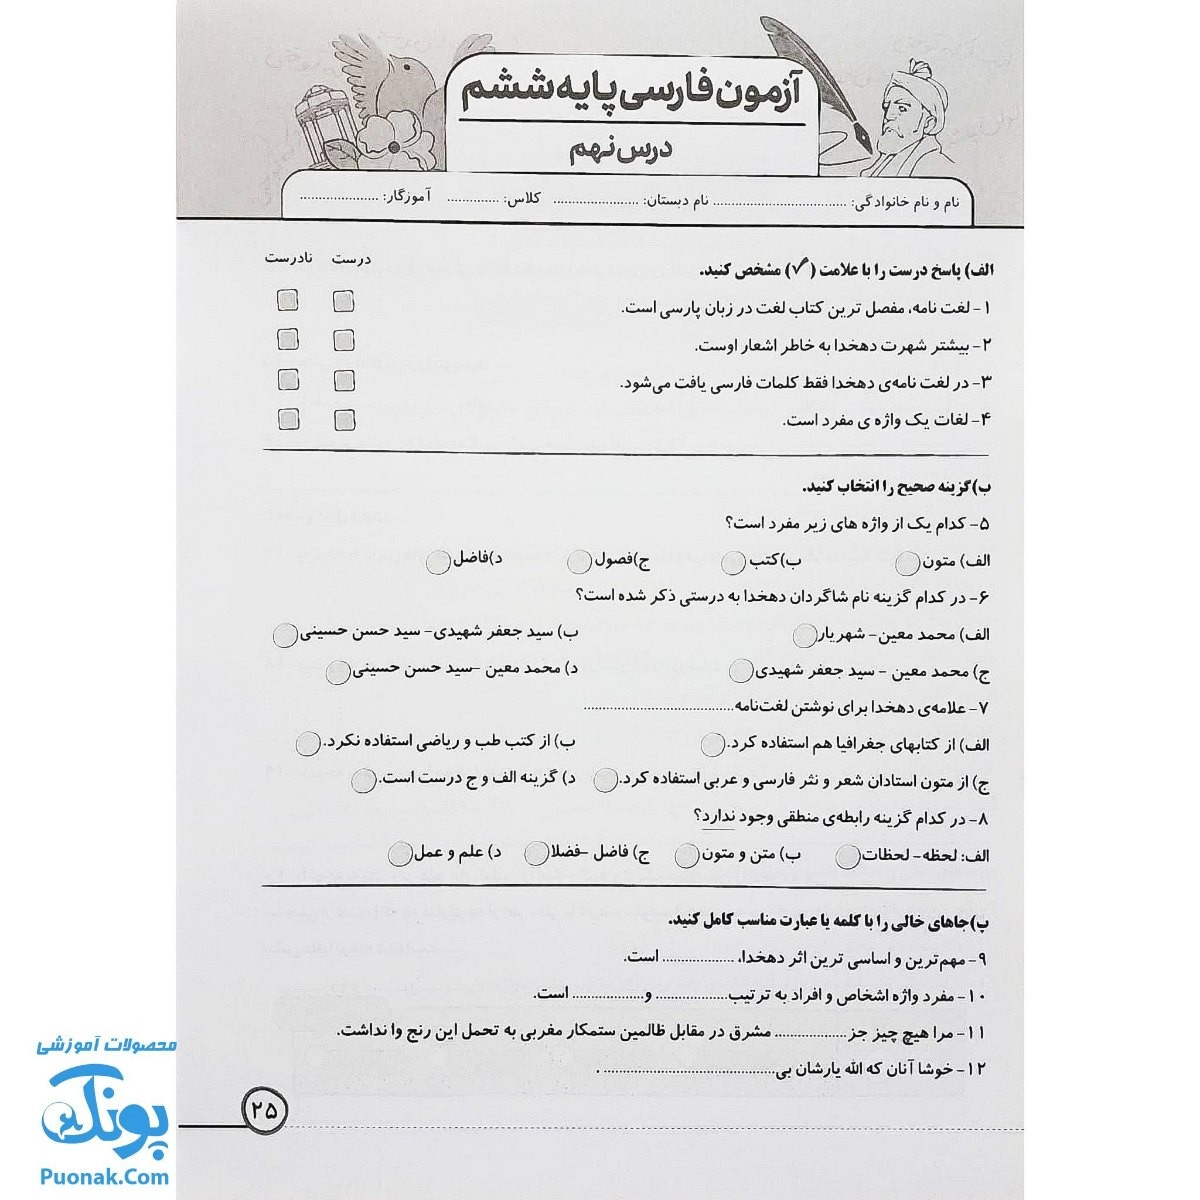 آزمون فارسی پایه ششم
درس نهم
نام و نام خانوادگی: .................................. نام دبستان: ....................... کلاس: .............. آموزگار: .....................
الف) پاسخ درست را با علامت (✓) مشخص کنید. درست نادرست
۱- لغت نامه، مفصل ترین کتاب لغت در زبان پارسی است.
۲- بیشتر شهرت دهخدا به خاطر اشعار اوست.
۳- در لغت نامه‌ی دهخدا فقط کلمات فارسی یافت می‌شود.
۴- لغات یک واژه ی مفرد است.
ب)گزینه صحیح را انتخاب کنید.
۵- کدام یک از واژه های زیر مفرد است؟
الف) متون ب)کتب ج)فصول د)فاضل
۶- در کدام گزینه نام شاگردان دهخدا به درستی ذکر شده است؟
الف) محمد معین- شهریار ب) سید جعفر شهیدی- سید حسن حسینی
ج) محمد معین - سید جعفر شهیدی د) محمد معین -سید حسن حسینی
۷- علامه‌ی دهخدا برای نوشتن لغت‌نامه........................................
الف) از کتابهای جغرافیا هم استفاده کرد. ب) از کتب طب و ریاضی استفاده نکرد.
ج) از متون استادان شعر و نثر فارسی و عربی استفاده کرد. د) گزینه الف و ج درست است.
۸- در کدام گزینه رابطه‌ی منطقی وجود ندارد؟
الف: لحظه- لحظات ب) متن و متون ج) فاضل -فضلا د) علم و عمل
پ)جاهای خالی را با کلمه یا عبارت مناسب کامل کنید.
۹- مهم‌ترین و اساسی ترین اثر دهخدا، ................... است.
۱۰- مفرد واژه اشخاص و افراد به ترتیب................... و................... است.
۱۱- مرا هیچ چیز جز................... مشرق در مقابل ظالمین ستمکار مغربی به تحمل این رنج وا نداشت.
۱۲- خوشا آنان که الله یارشان بی............................................. .
۲۵
محصولات آموزشی
پونک
Puonak.Com